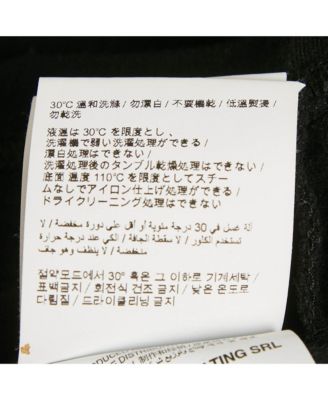 30℃ 溫和洗滌 / 勿漂白 / 不要機乾 / 低溫熨燙 /
勿乾洗
液温は 30℃ を限度とし、
洗濯機で弱い洗濯処理ができる /
漂白処理はできない /
洗濯処理後のタンブル乾燥処理はできない /
底面 温度 110℃ を限度としてスチー
ムなしでアイロン仕上げ処理ができる /
ドライクリーニング処理はできない
آلة غسل في 30 درجة مئوية أو أقل على دورة مخفضة / لا
تستخدم الكلور / لا سقطة الجافة / الكي عند درجة حرارة
منخفضة / لا ينظف وهو جاف
절약모드에서 30° 혹은 그 이하로 기계세탁 /
표백금지 / 회전식 건조 금지 / 낮은 온도로
다림질 / 드라이클리닝 금지
TING SRL